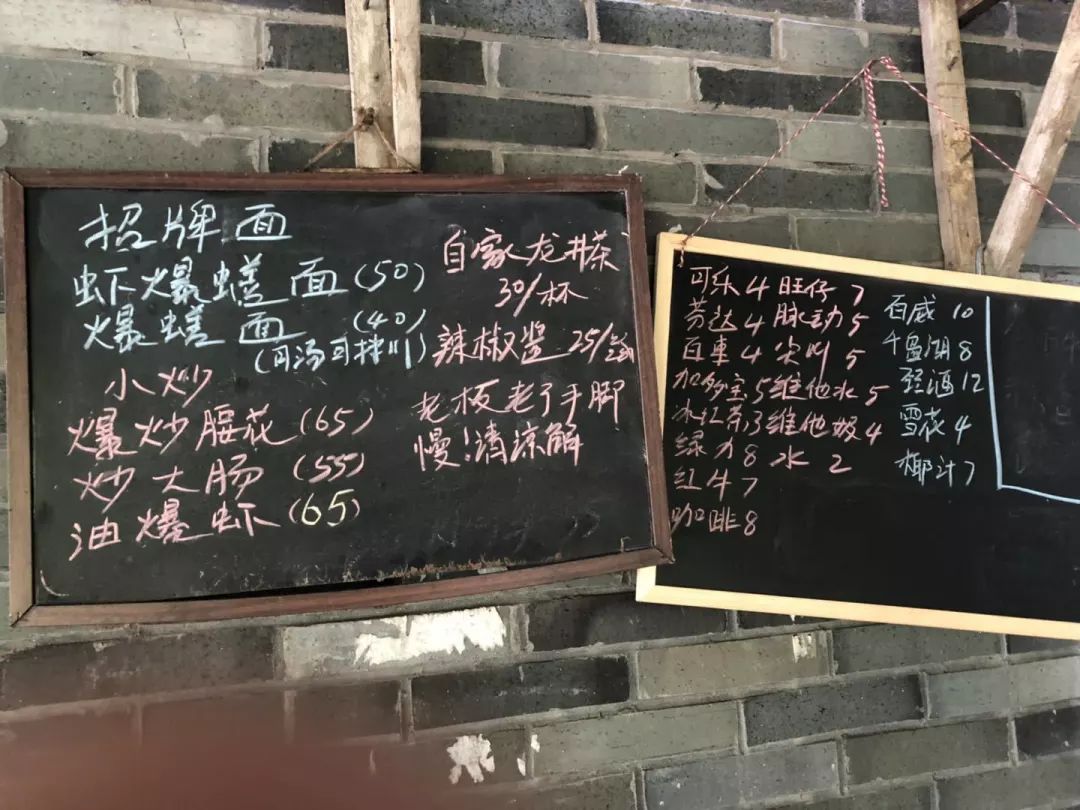 招牌面
虾爆蟮面(50)
爆蟮面(40)
汤可拌川)
小炒
爆炒腰花(65)
炒大肠(55)
油爆虾(65)
自家龙井茶
30/杯
辣椒酱 25/
老板老了手脚
慢!清凉解
可乐4 旺仔7
芬达4 脉动5
百事4 尖叫5
加多宝5 维他水5
冰红茶3 维他奶4
绿力8 水 2
红牛7
咖啡8
百威 10
千岛湖 8
劲酒12
雪花4
椰汁7